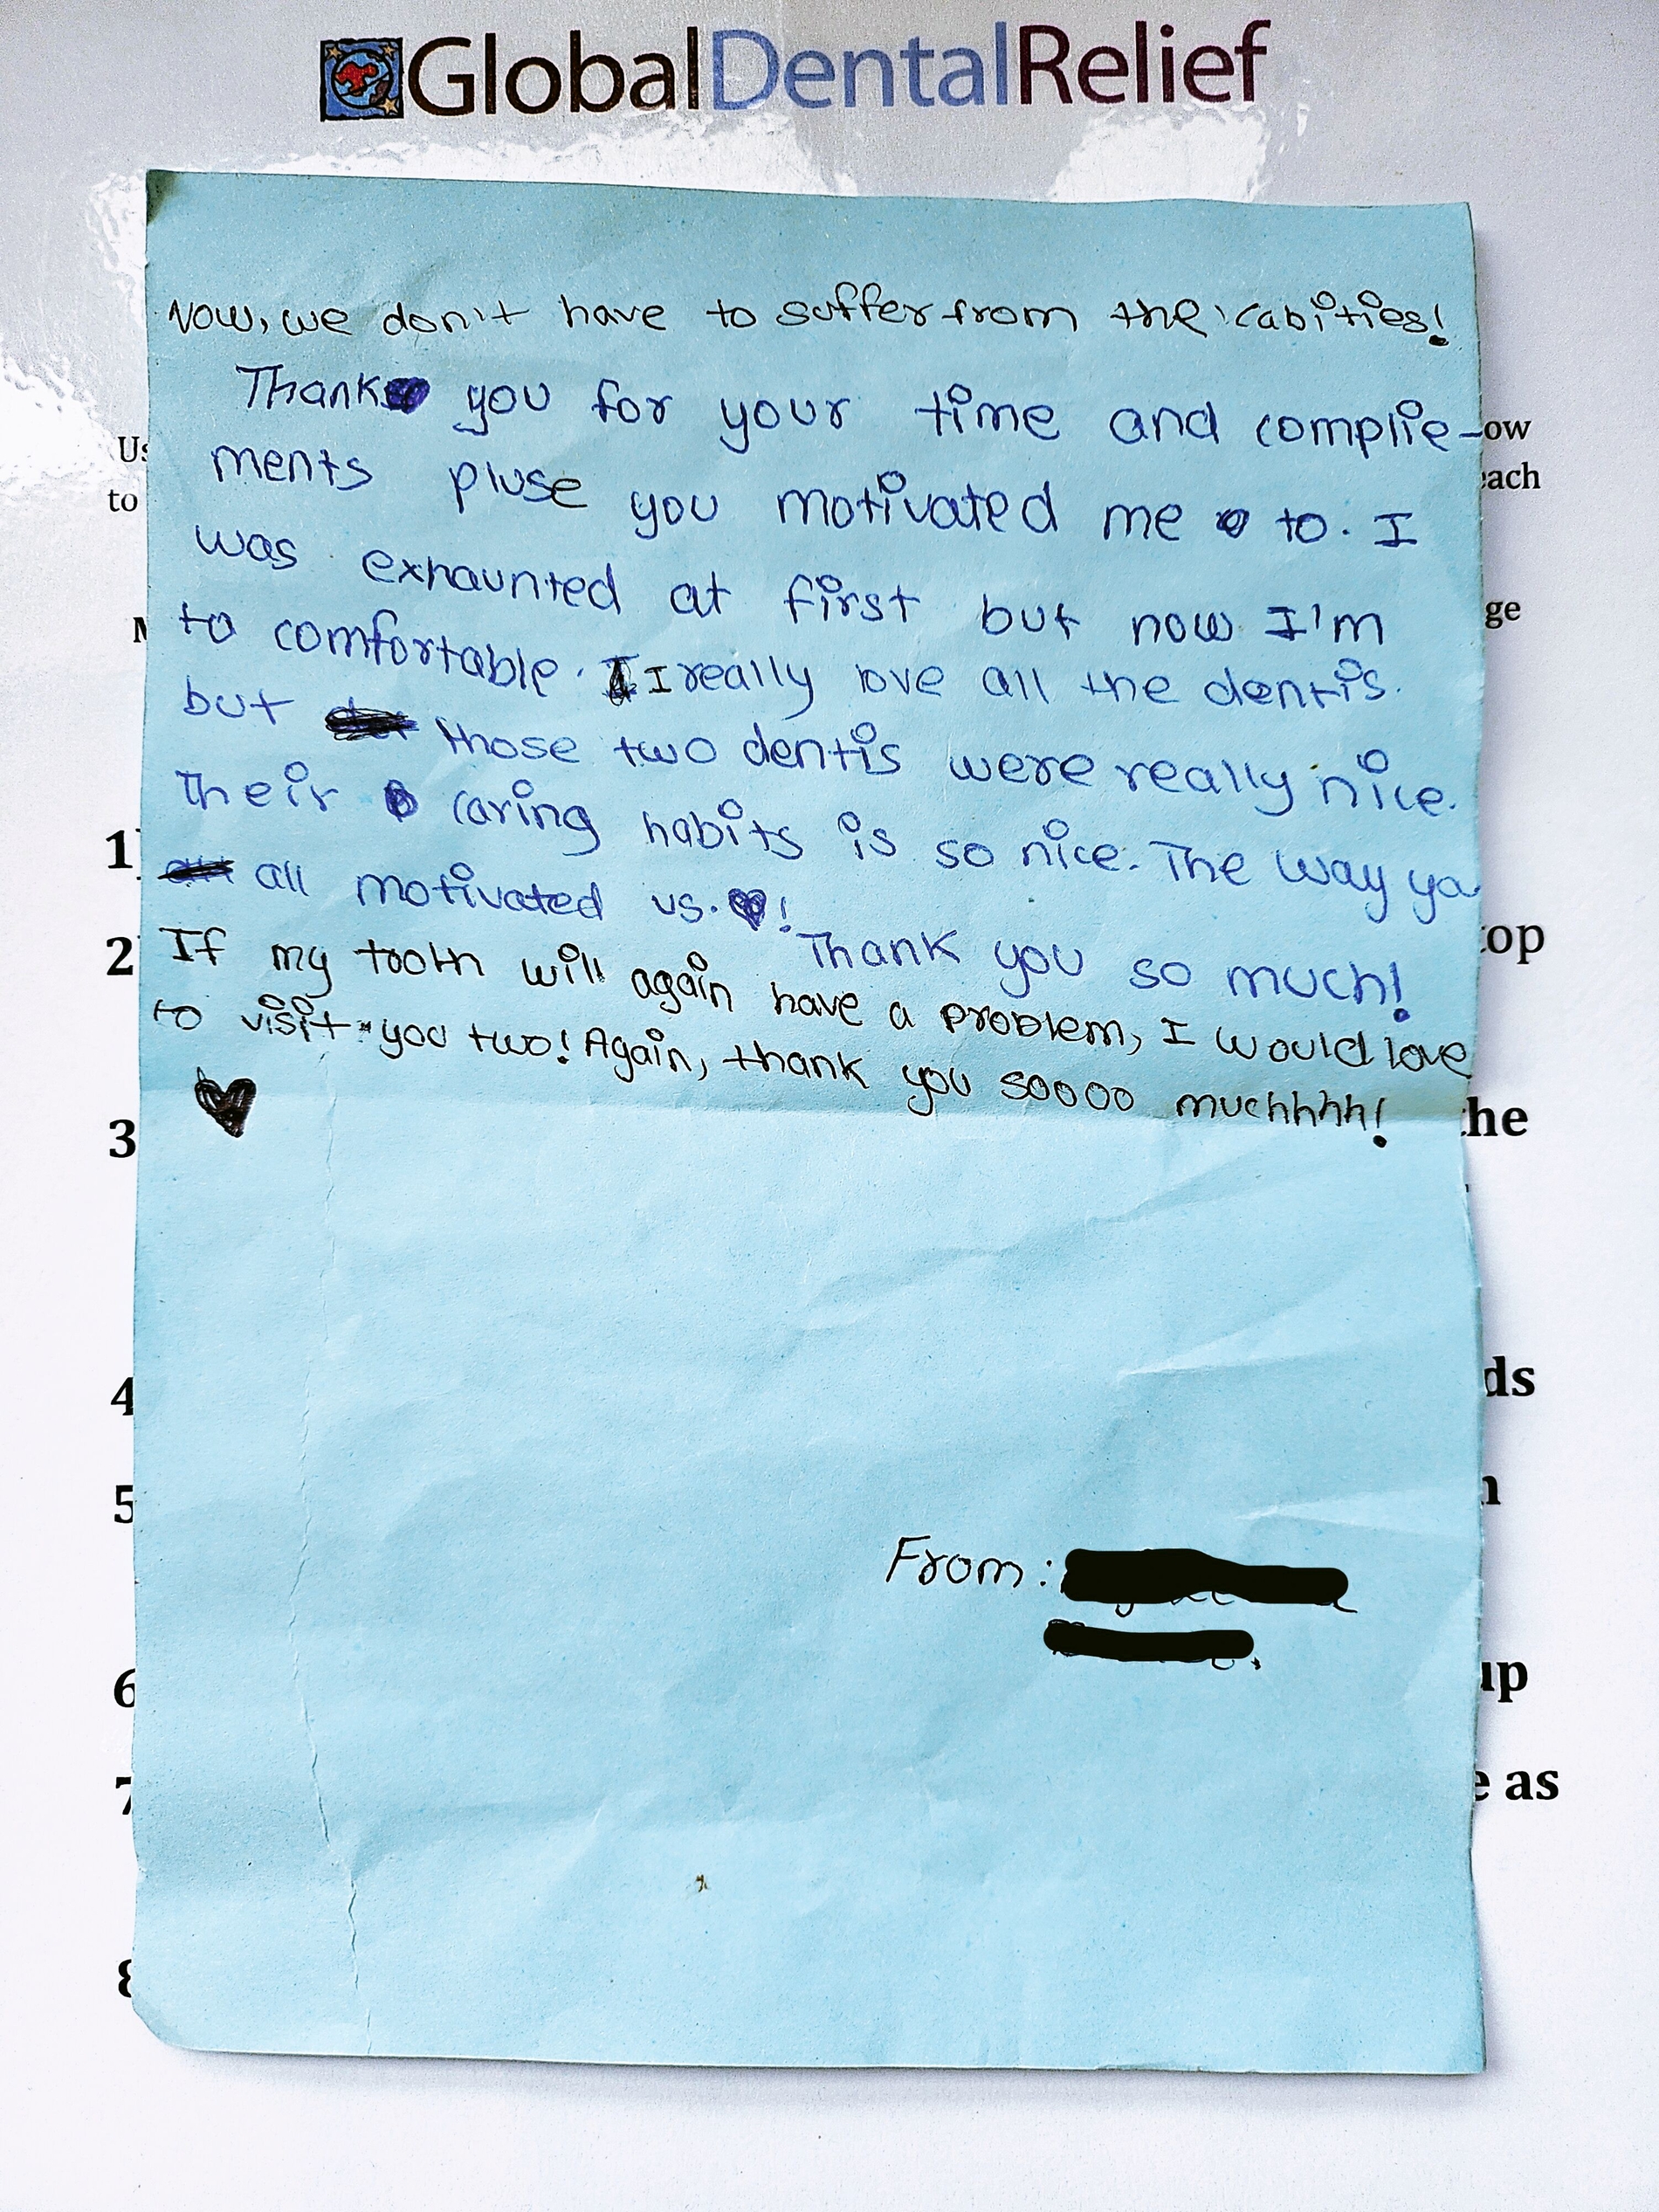 GlobalDentalRelief
Now, we don't have to suffer from the cabities!
Thank you for your time and complie-
ments pluse you motivated me to. I
was exhaunted at first but now I'm
to comfortable. I really love all the dentis.
but those two dentis were really nice.
Their caring habits is so nice. The way ya
all motivated us. ♥! Thank you so much!
If my tooth will again have a problem, I would love
to visit you two! Again, thank you soooo muchhhh!
♥
From:
to
ow
each
ge
1
2
top
3
the
4
ds
5
n
6
up
7
e as
8